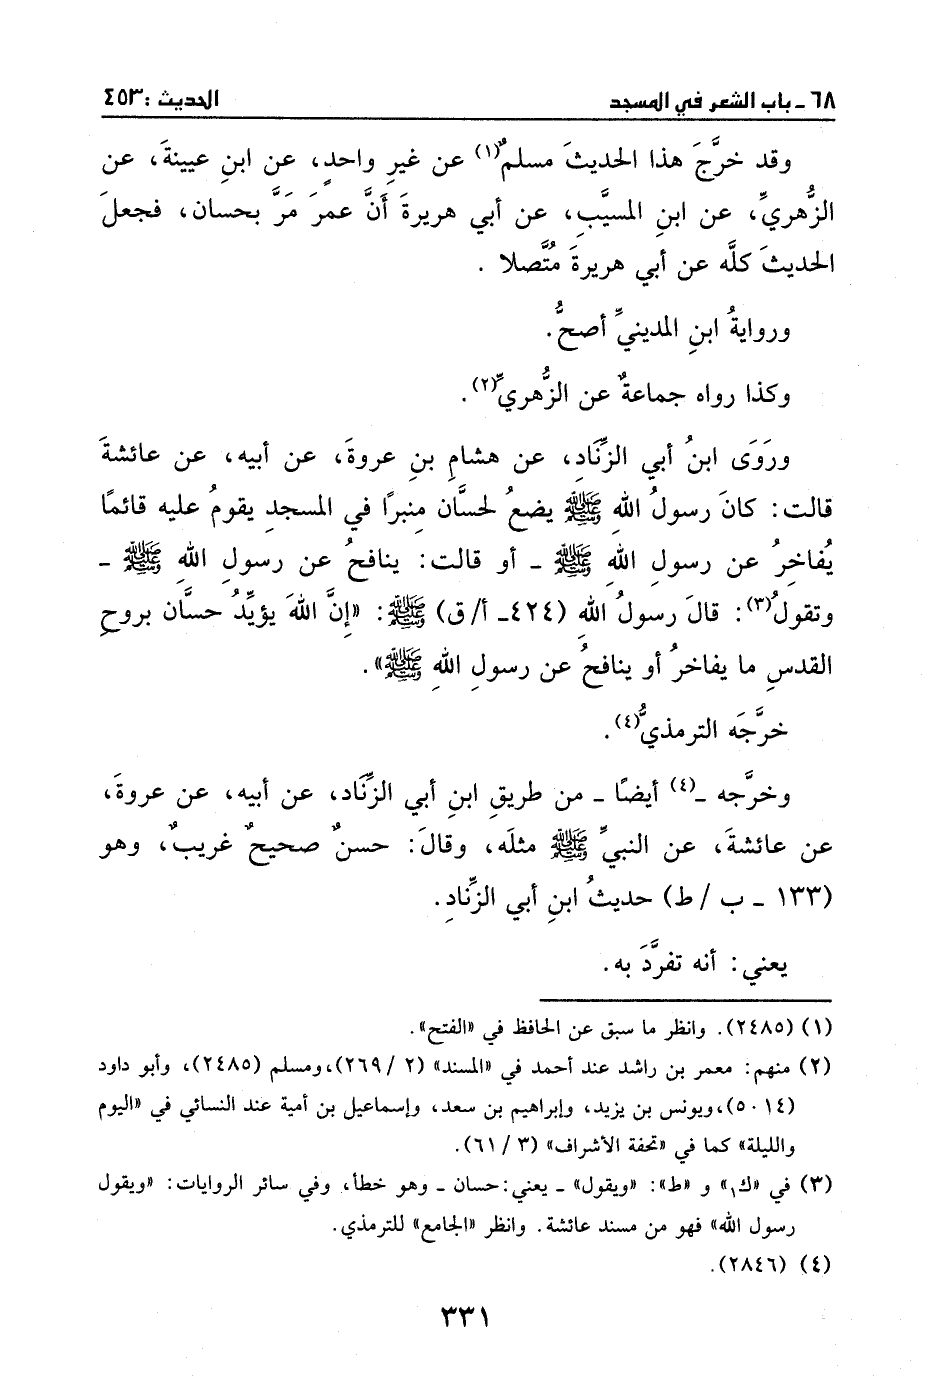 ٦٨ - باب الشعر في المسجد الحديث : ٤٥٣
وقد خرَّجَ هذا الحديثَ مسلمٌ(١) عن غيرِ واحدٍ، عن ابنِ عيينةَ، عن
الزُّهريِّ، عن ابنِ المسيَّبِ، عن أبي هريرةَ أَنَّ عمرَ مَرَّ بحسان، فجعلَ
الحديثَ كلَّه عن أبي هريرةَ مُتَّصلا .
وروايةُ ابنِ المدينيِّ أصحُّ.
وكذا رواه جماعةٌ عن الزُّهريِّ(٢).
ورَوَى ابنُ أبي الزِّنَادِ، عن هشامِ بنِ عروةَ، عن أبيه، عن عائشةَ
قالت: كانَ رسولُ اللهِ ﷺ يضعُ لحسَّان مِنبرًا في المسجدِ يقومُ عليه قائمًا
يُفاخِرُ عن رسولِ اللهِ ﷺ - أو قالت: ينافحُ عن رسولِ اللهِ ﷺ -
وتقولُ(٣): قالَ رسولُ اللهِ (٤٢٤- أ/ ق) ﷺ: «إنَّ اللهَ يؤيِّدُ حسَّان بروحِ
القدسِ ما يفاخرُ أو ينافحُ عن رسولِ اللهِ ﷺ».
خرَّجَه الترمذيُّ(٤).
وخرَّجه -(٤) أيضًا - من طريقِ ابنِ أبي الزِّنَاد، عن أبيه، عن عروةَ،
عن عائشةَ، عن النبيِّ ﷺ مثلَه، وقالَ: حسنٌ صحيحٌ غريبٌ، وهو
(١٣٣ - ب / ط) حديثُ ابنِ أبي الزِّنادِ.
يعني: أنه تفرَّدَ به.
(١) (٢٤٨٥). وانظر ما سبق عن الحافظ في «الفتح».
(٢) منهم: معمر بن راشد عند أحمد في «المسند» (٢ / ٢٦٩)،ومسلم (٢٤٨٥)، وأبو داود
(٥٠١٤)،ويونس بن يزيد، وإبراهيم بن سعد، وإسماعيل بن أمية عند النسائي في «اليوم
والليلة» كما في «تحفة الأشراف» (٣ / ٦١).
(٣) في «ك١» و «ط»: «ويقول» - يعني:حسان - وهو خطأ، وفي سائر الروايات: «ويقول
رسول الله» فهو من مسند عائشة. وانظر «الجامع» للترمذي.
(٤) (٢٨٤٦).
٣٣١